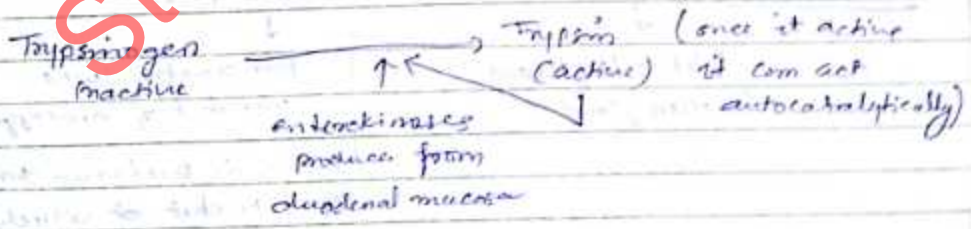 Trypsinogen → Trypsin (once it active
inactive (active) it can act
autocatalytically)
enterokinases
produce from
duodenal mucosa